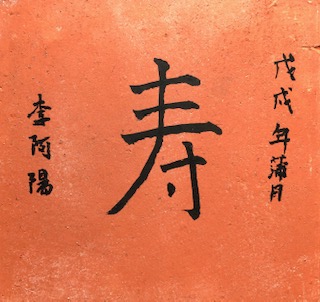 戊戌年蒲月
寿
李阿陽